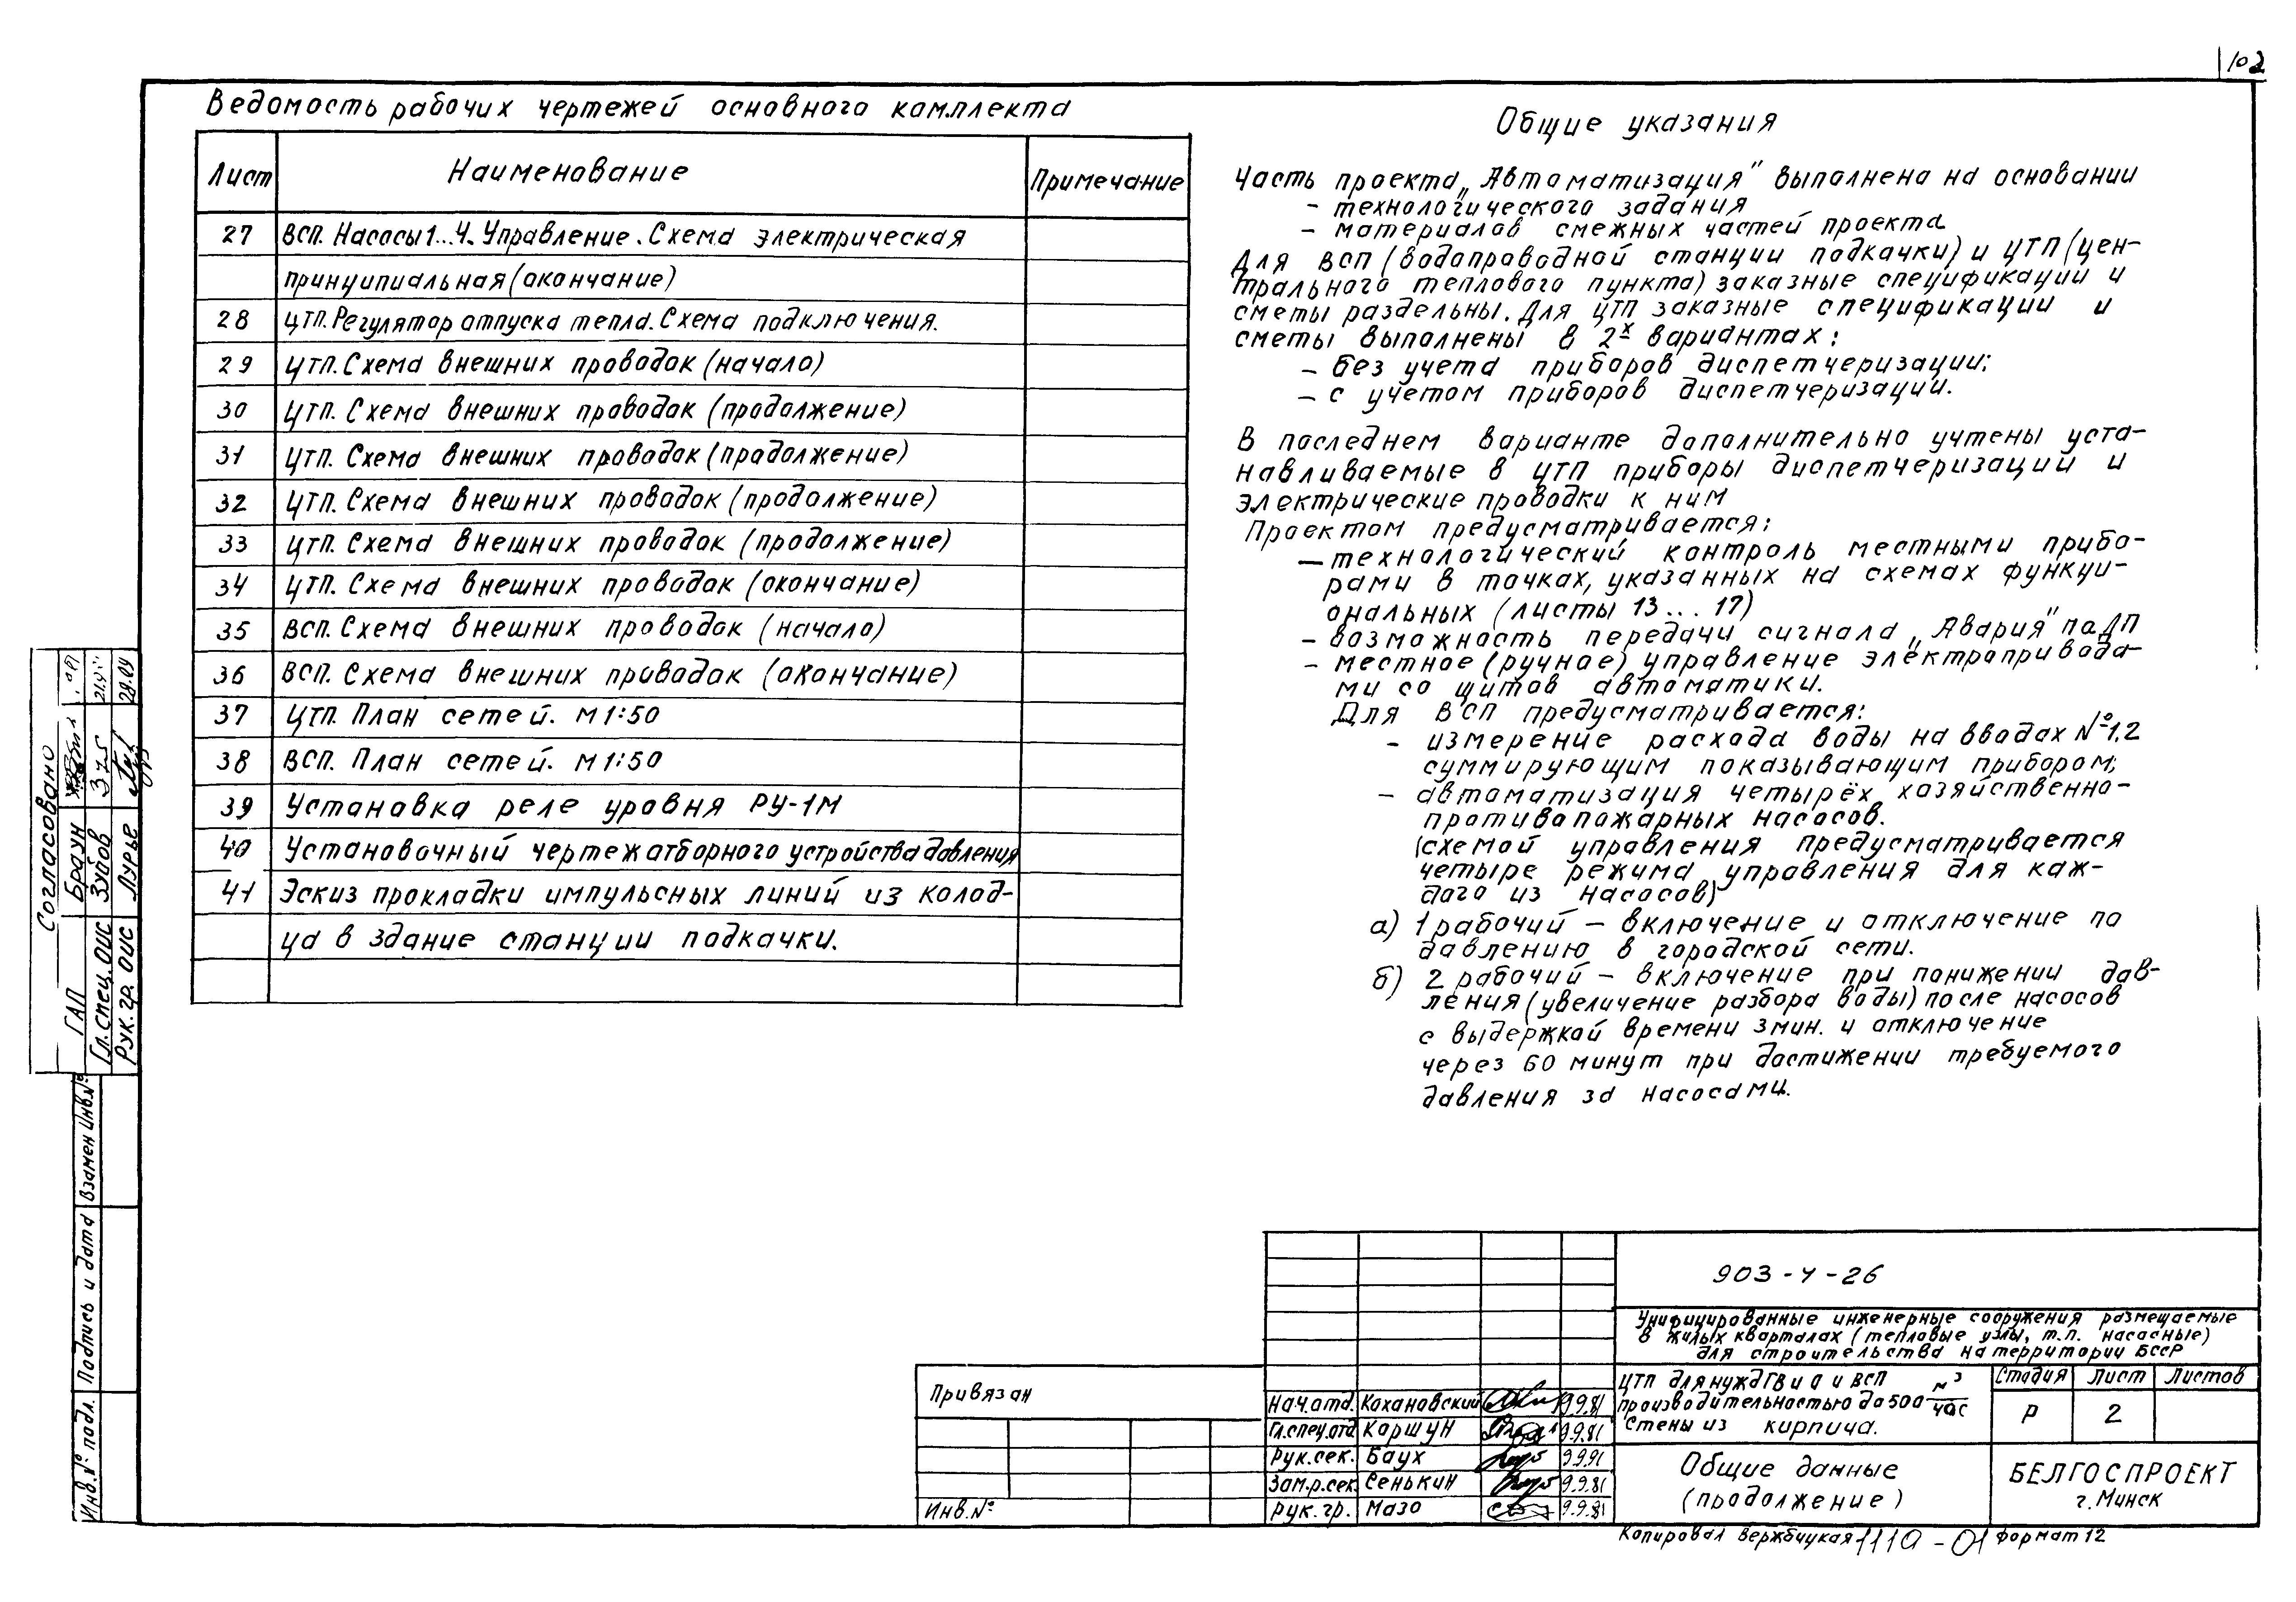 102
Ведомость рабочих чертежей основного комплекта
Лист Наименование Примечание
27 ВСП. Насосы 1...4. Управление. Схема электрическая
принципиальная (окончание)
28 ЦТП. Регулятор отпуска тепла. Схема подключения.
29 ЦТП. Схема внешних проводок (начало)
30 ЦТП. Схема внешних проводок (продолжение)
31 ЦТП. Схема внешних проводок (продолжение)
32 ЦТП. Схема внешних проводок (продолжение)
33 ЦТП. Схема внешних проводок (продолжение)
34 ЦТП. Схема внешних проводок (окончание)
35 ВСП. Схема внешних проводок (начало)
36 ВСП. Схема внешних проводок (окончание)
37 ЦТП. План сетей. М 1:50
38 ВСП. План сетей. М 1:50
39 Установка реле уровня РУ-1М
40 Установочный чертеж отборного устройства давления
41 Эскиз прокладки импульсных линий из колод-
ца в здание станции подкачки.
Общие указания
Часть проекта „Автоматизация" выполнена на основании
- технологического задания
- материалов смежных частей проекта
Для ВСП (водопроводной станции подкачки) и ЦТП (цен-
трального теплового пункта) заказные спецификации и
сметы раздельны. Для ЦТП заказные спецификации и
сметы выполнены в 2х вариантах:
- без учета приборов диспетчеризации;
- с учетом приборов диспетчеризации.
В последнем варианте дополнительно учтены уста-
навливаемые в ЦТП приборы диспетчеризации и
электрические проводки к ним
Проектом предусматривается:
- технологический контроль местными прибо-
рами в точках, указанных на схемах функци-
ональных (листы 13... 17)
- возможность передачи сигнала „Авария" на ДП
- местное (ручное) управление электропривода-
ми со щитов автоматики.
Для ВСП предусматривается:
- измерение расхода воды на вводах №1,2
суммирующим показывающим прибором;
- автоматизация четырёх хозяйственно-
противопожарных насосов.
(схемой управления предусматривается
четыре режима управления для каж-
дого из насосов)
а) 1 рабочий - включение и отключение по
давлению в городской сети.
б) 2 рабочий - включение при понижении дав-
ления (увеличение разбора воды) после насосов
с выдержкой времени 3 мин. и отключение
через 60 минут при достижении требуемого
давления за насосами.
Согласовано
ГАП Браун
Гл. спец. ОИС Зубов
Рук. гр. ОИС Лурье 28.04
Взамен Инв.№
Подпись и дата
Инв.№ подл.
Привязан
Инв.№
903-4-26
Унифицированные инженерные сооружения размещаемые
в жилых кварталах (тепловые узлы, т.п. насосные)
для строительства на территории БССР
Нач.отд. Кохановский 9.9.81
Гл.спец.отд Коршун 9.9.81
Рук.сек. Баух 9.9.91
Зам.р.сек. Сенькин 9.9.81
Рук. гр. Мазо 9.9.81
ЦТП для нужд ГВ и О и ВСП
производительностью до 500 м³/час
Стены из кирпича.
Стадия Лист Листов
Р 2
Общие данные
(продолжение)
БЕЛГОСПРОЕКТ
г. Минск
Копировал Вержбицкая 111а-01 Формат 12